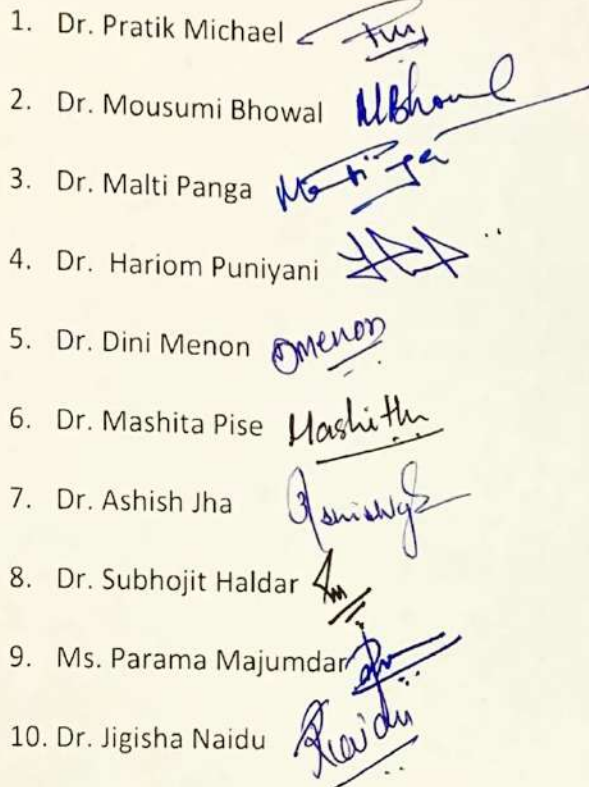 1. Dr. Pratik Michael
2. Dr. Mousumi Bhowal MBhowal
3. Dr. Malti Panga
4. Dr. Hariom Puniyani
5. Dr. Dini Menon Dmenon
6. Dr. Mashita Pise Mashitha
7. Dr. Ashish Jha
8. Dr. Subhojit Haldar
9. Ms. Parama Majumdar
10. Dr. Jigisha Naidu JNaidu